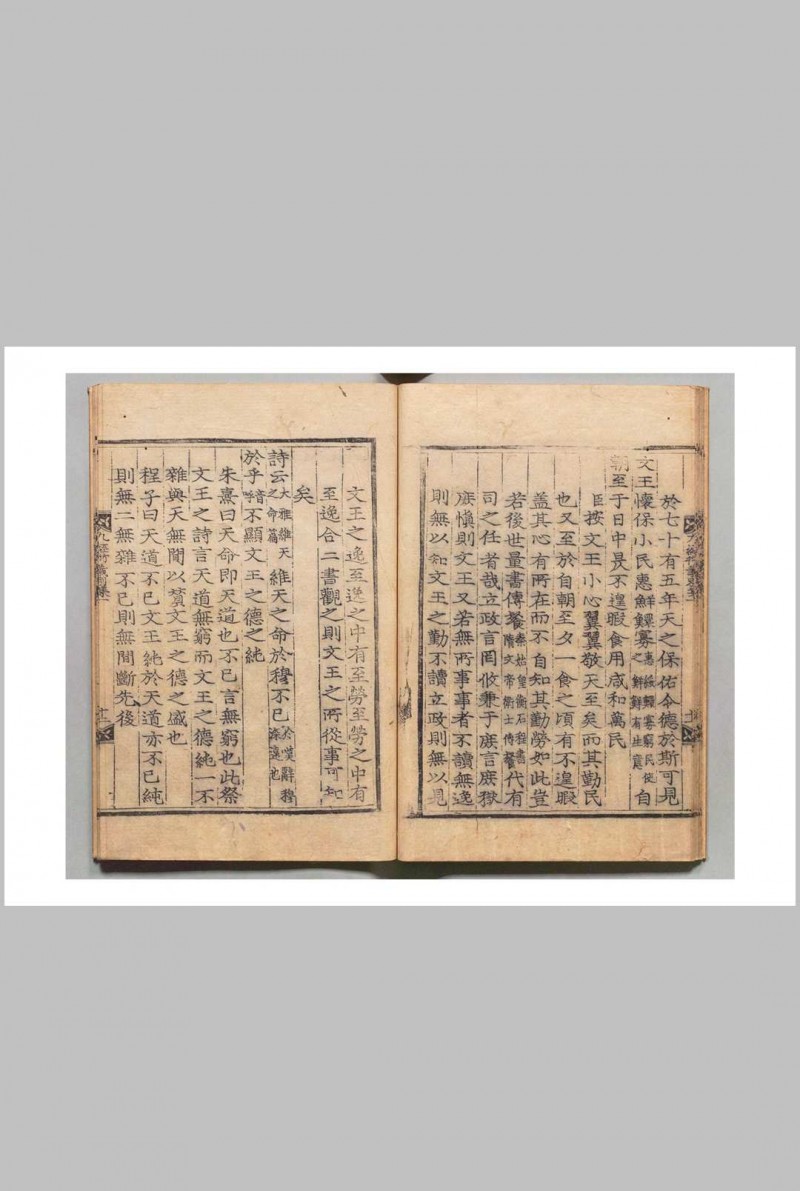 於七十有五年天之保佑令德於斯可見
文王懷保小民惠鮮鰥寡惠綏鰥寡窮民使之鮮鮮有生意自
朝至于日中昃不遑暇食用咸和萬民
臣按文王小心翼翼敬天至矣而其勤民
也又至於自朝至夕一食之頃有不遑暇
盖其心有所在而不自知其勤勞如此豈
若後世量書傳餐秦始皇衡石程書隋文帝衛士傳餐代有
司之任者哉立政言罔攸兼于庶言庶獄
庶愼則文王又若無所事事者不讀無逸
則無以知文王之勤不讀立政則無以見
文王之逸至逸之中有至勞至勞之中有
至逸合二書觀之則文王之所從事可知
矣
詩云大雅維天之命篇維天之命於穆不已於嘆辭穆深遠也
於乎音呼不顯文王之德之純
朱熹曰天命即天道也不已言無窮也此祭
文王之詩言天道無窮而文王之德純一不
雜與天無間以贊文王之德之盛也
程子曰天道不已文王純於天道亦不已純
則無二無雜不已則無間斷先後
九經衍義